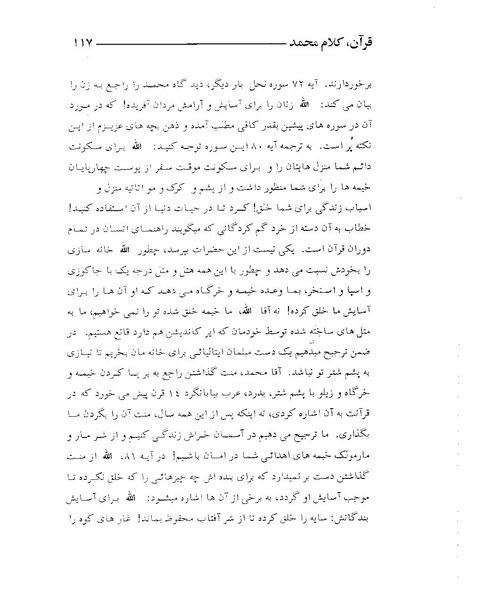 قرآن، کلام محمد ــــــــــــ ۱۱۷
برخوردارند. آیه ۷۲ سوره نحل بار دیگر، دید گاه محمد را راجع به زن را
بیان می کند: الله زنان را برای آسایش و آرامش مردان آفریده! که در مورد
آن در سوره های پیشین بقدر کافی مطلب آمده و ذهن بچه های عزیزم از این
نکته پُر است. به ترجمه آیه ۸۰ این سوره توجه کنید: الله برای سکونت
دائم شما منزل هایتان را و برای سکونت موقت سفر از پوست چهارپایان
خیمه ها را برای شما منظور داشت و از پشم و کرک و مو اثاثیه منزل و
اسباب زندگی برای شما خلق! کرد تا در حیات دنیا از آن استفاده کنید!
خطاب به آن دسته از خرد گم کردگانی که میگویند راهنمای انسان در تمام
دوران قرآن است. یکی نیست از این حضرات بپرسد، چطور الله خانه سازی
را بخودش نسبت می دهد و چطور با این همه هتل و متل درجه یک با جاکوزی
و اسپا و استخر، بما وعده خیمه و خرگاه می دهد که او آن ها را برای
آسایش ما خلق کرده! نه آقا الله، ما خیمه خلق شده تو را نمی خواهیم، ما به
متل های ساخته شده توسط خودمان که ایر کاندیشن هم دارد قانع هستیم. در
ضمن ترجیح میدهیم یک دست مبلمان ایتالیائی برای خانه مان بخریم تا نیازی
به پشم شتر تو نباشد. آقا محمد، منت گذاشتن راجع به بر پا کردن خیمه و
خرگاه و زیلو با پشم شتر، بدرد، عرب بیابانگرد ۱۴ قرن پیش می خورد که در
قرآنت به آن اشاره کردی، نه اینکه پس از این همه سال، منت آن را بگردن ما
بگذاری. ما ترجیح می دهیم در آسمان خراش زندگی کنیم و از شر مار و
مارمولک خیمه های اهدائی شما در امان باشیم! در آیه ۸۱، الله از منت
گذاشتن دست بر نمیدارد که برای بنده اش چه چیزهائی را که خلق نکرده تا
موجب آسایش او گردد، به برخی از آن ها اشاره میشود: الله برای آسایش
بندگانش: سایه را خلق کرده تا از شر آفتاب محفوظ بماند! غار های کوه را